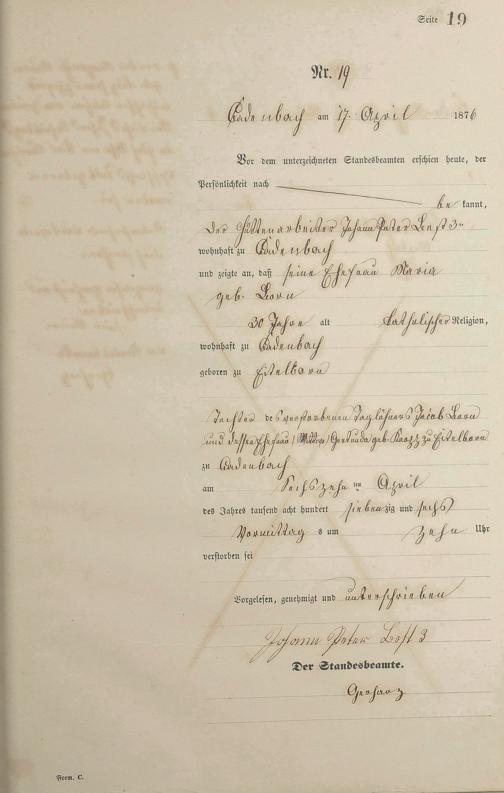 Seite 19
Nr. 19
Cadenbach am 17. April 1876
Vor dem unterzeichneten Standesbeamten erschien heute, der
Persönlichkeit nach
be kannt,
der Hüttenarbeiter Johann Peter Best 3er
wohnhaft zu Cadenbach
und zeigte an, daß seine Ehefrau Maria
geb. Born
30 Jahre alt katholischer Religion,
wohnhaft zu Cadenbach
geboren zu Eitelborn
Tochter des verstorbenen Taglöhners Jacob Born
und dessen Ehefrau Gertruda geb. zu Eitelborn
zu Cadenbach
am Sechszehnten April
des Jahres tausend acht hundert siebenzig und sechs
Vormittag s um zehn Uhr
verstorben sei
Vorgelesen, genehmigt und unterschrieben
Johann Peter Best 3
Der Standesbeamte.
Gerharz
Form. C.